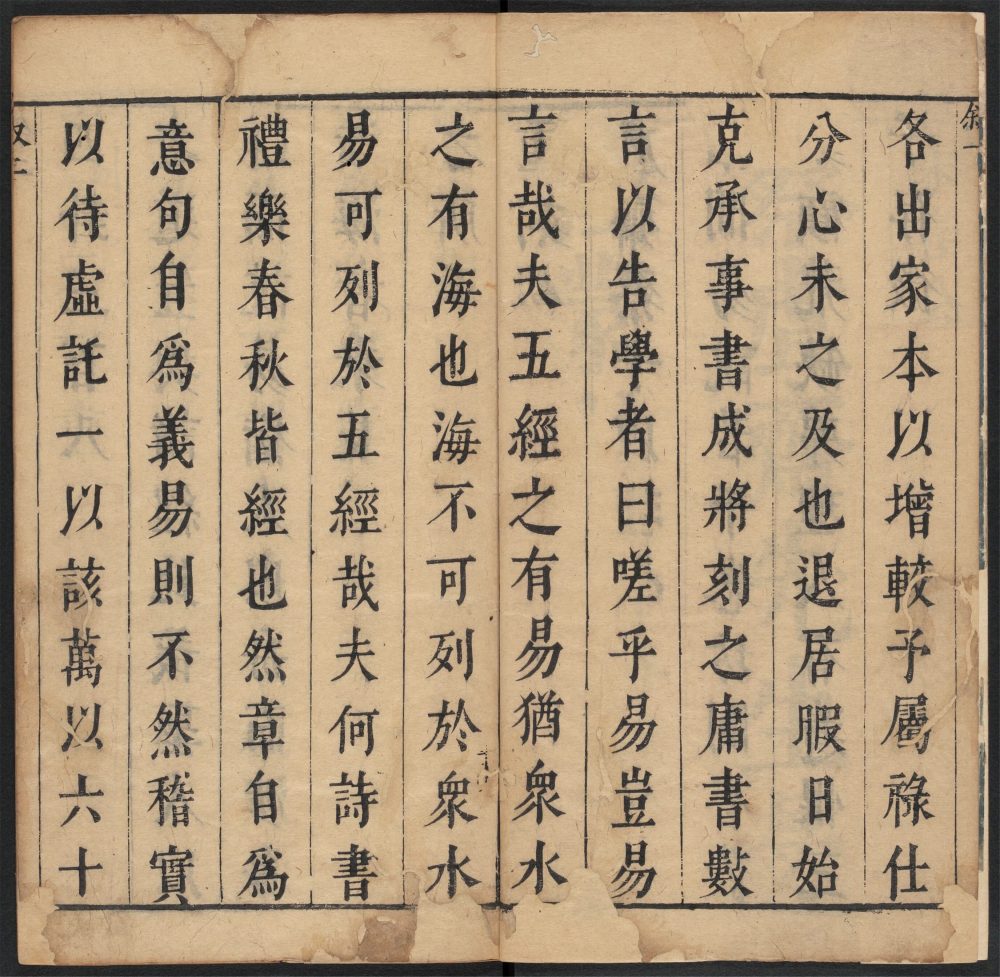 各出家本以增較予屬祿仕
分心未之及也退居暇日始
克承事書成將刻之庸書數
言以告學者曰嗟乎易豈易
言哉夫五經之有易猶衆水
之有海也海不可列於衆水
易可列於五經哉夫何詩書
禮樂春秋皆經也然章自爲
意句自爲義易則不然稽實
以待虛託一以該萬以六十